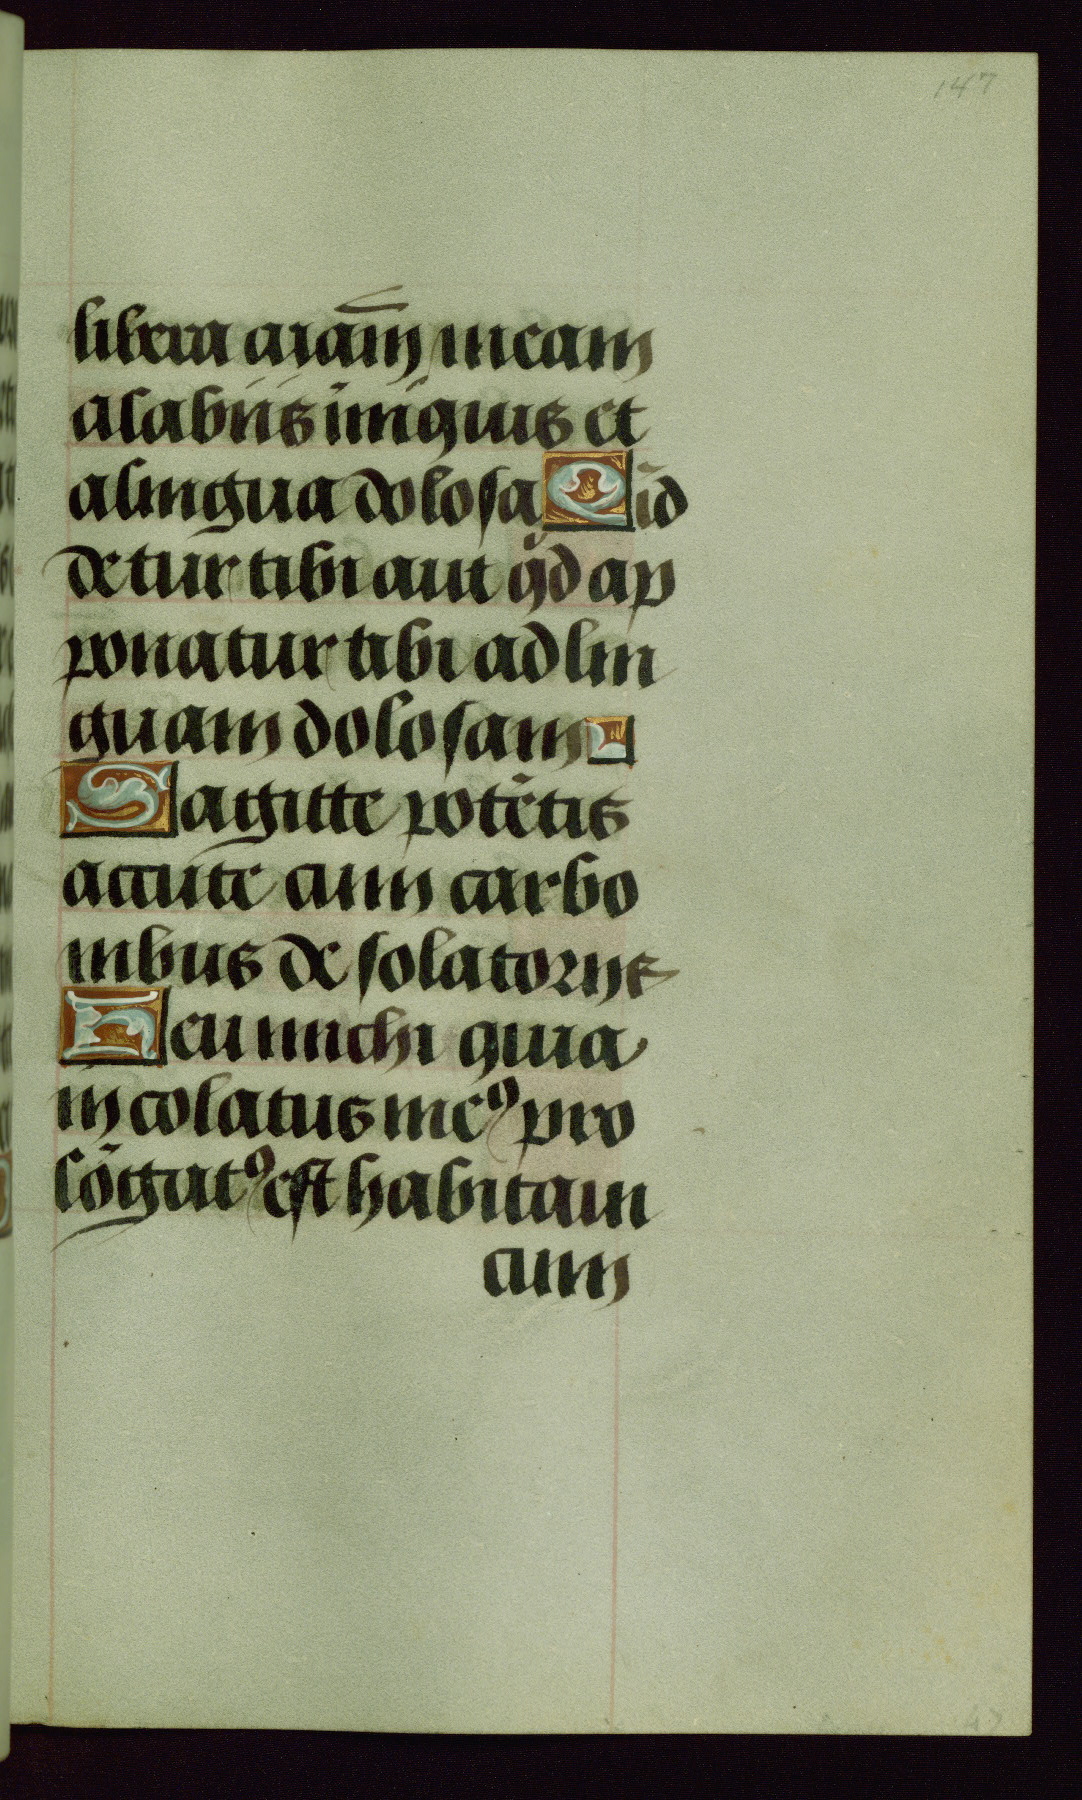 147
libera aiām meam
a labiis iniquis et
a lingua dolosa Qīd
detur tibi aut qd ap
ponatur tibi ad lin
guam dolosam
Sagitte potētis
accute cum carbo
nibus desolatoriis
Heu michi quia
incolatus meꝰ pro
lōgatꝰ est habitaui
cum